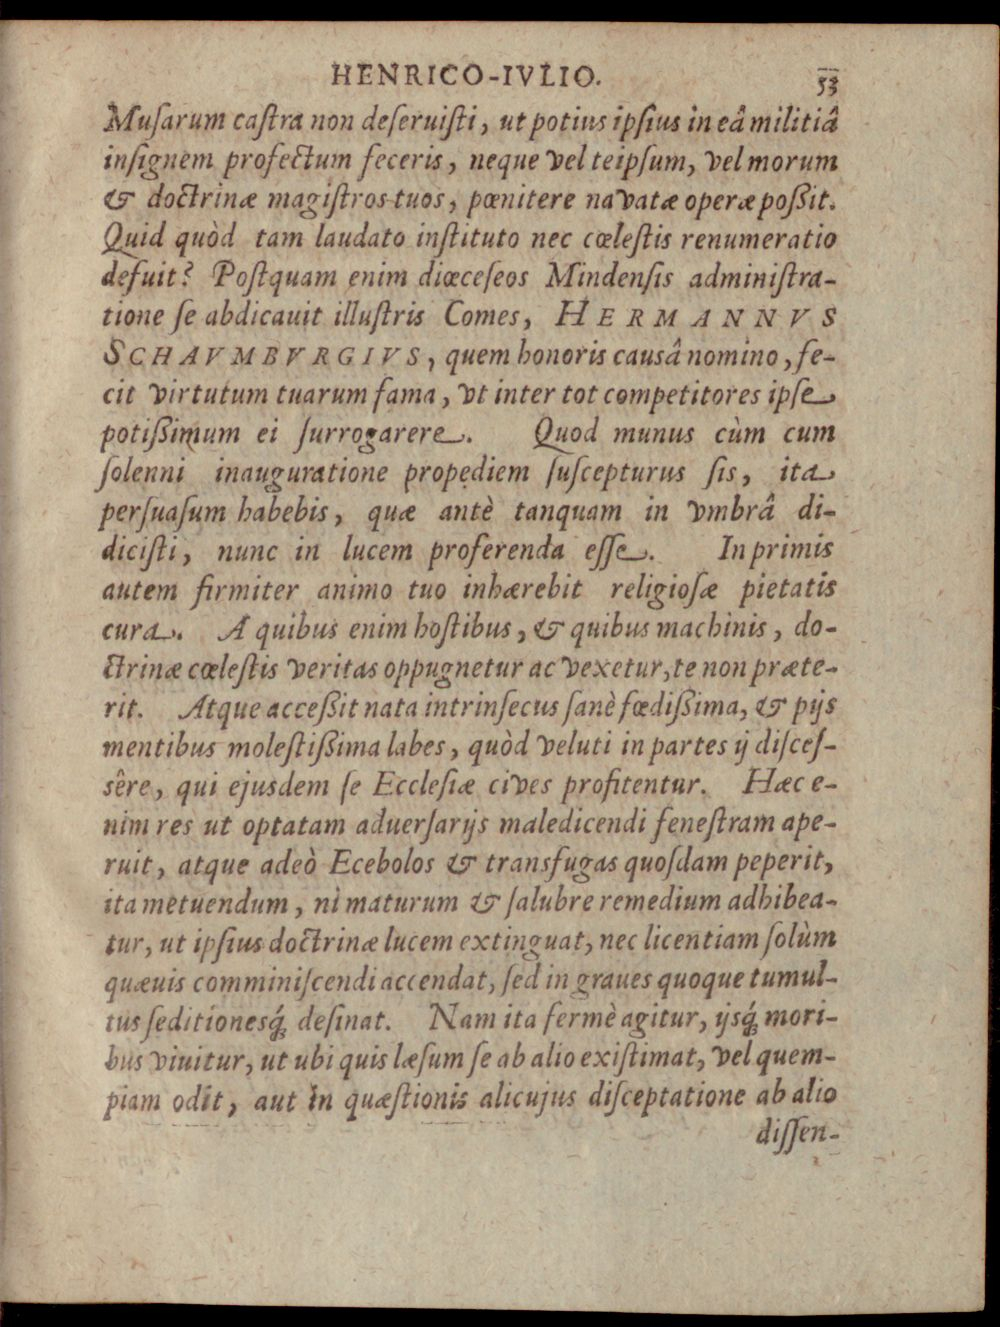 HENRICO-IVLIO. 53
Muſarum caſtra non deſeruiſti, ut potius ipſius in eâ militiâ
inſignem profectum feceris, neque vel teipſum, vel morum
& doctrinæ magiſtros tuos, pœnitere navatæ operæ poßit.
Quid quòd tam laudato inſtituto nec cœleſtis renumeratio
defuit? Poſtquam enim diœceſeos Mindenſis adminiſtra-
tione ſe abdicauit illuſtris Comes, HERMANNVS
SCHAVMBVRGIVS, quem honoris causâ nomino, fe-
cit virtutum tuarum fama, vt inter tot competitores ipſe
potißimum ei ſurrogarere. Quod munus cùm cum
ſolenni inauguratione propediem ſuſcepturus ſis, ita
perſuaſum habebis, quæ antè tanquam in vmbrâ di-
diciſti, nunc in lucem proferenda eſſe. In primis
autem firmiter animo tuo inhærebit religioſæ pietatis
cura. A quibus enim hoſtibus, & quibus machinis, do-
ctrinæ cœleſtis veritas oppugnetur ac vexetur, te non præte-
rit. Atque acceßit nata intrinſecus ſanè fœdißima, & pijs
mentibus moleſtißima labes, quòd veluti in partes ij diſceſ-
sêre, qui ejusdem ſe Eccleſiæ cives profitentur. Hæc e-
nim res ut optatam aduerſarijs maledicendi feneſtram ape-
ruit, atque adeò Ecebolos & transfugas quoſdam peperit,
ita metuendum, nì maturum & ſalubre remedium adhibea-
tur, ut ipſius doctrinæ lucem extinguat, nec licentiam ſolùm
quæuis comminiſcendi accendat, ſed in graues quoque tumul-
tus ſeditionesq́; deſinat. Nam ita fermè agitur, ijsq́; mori-
bus viuitur, ut ubi quis læſum ſe ab alio exiſtimat, vel quem-
piam odit, aut in quæſtionis alicujus diſceptatione ab alio
diſſen-